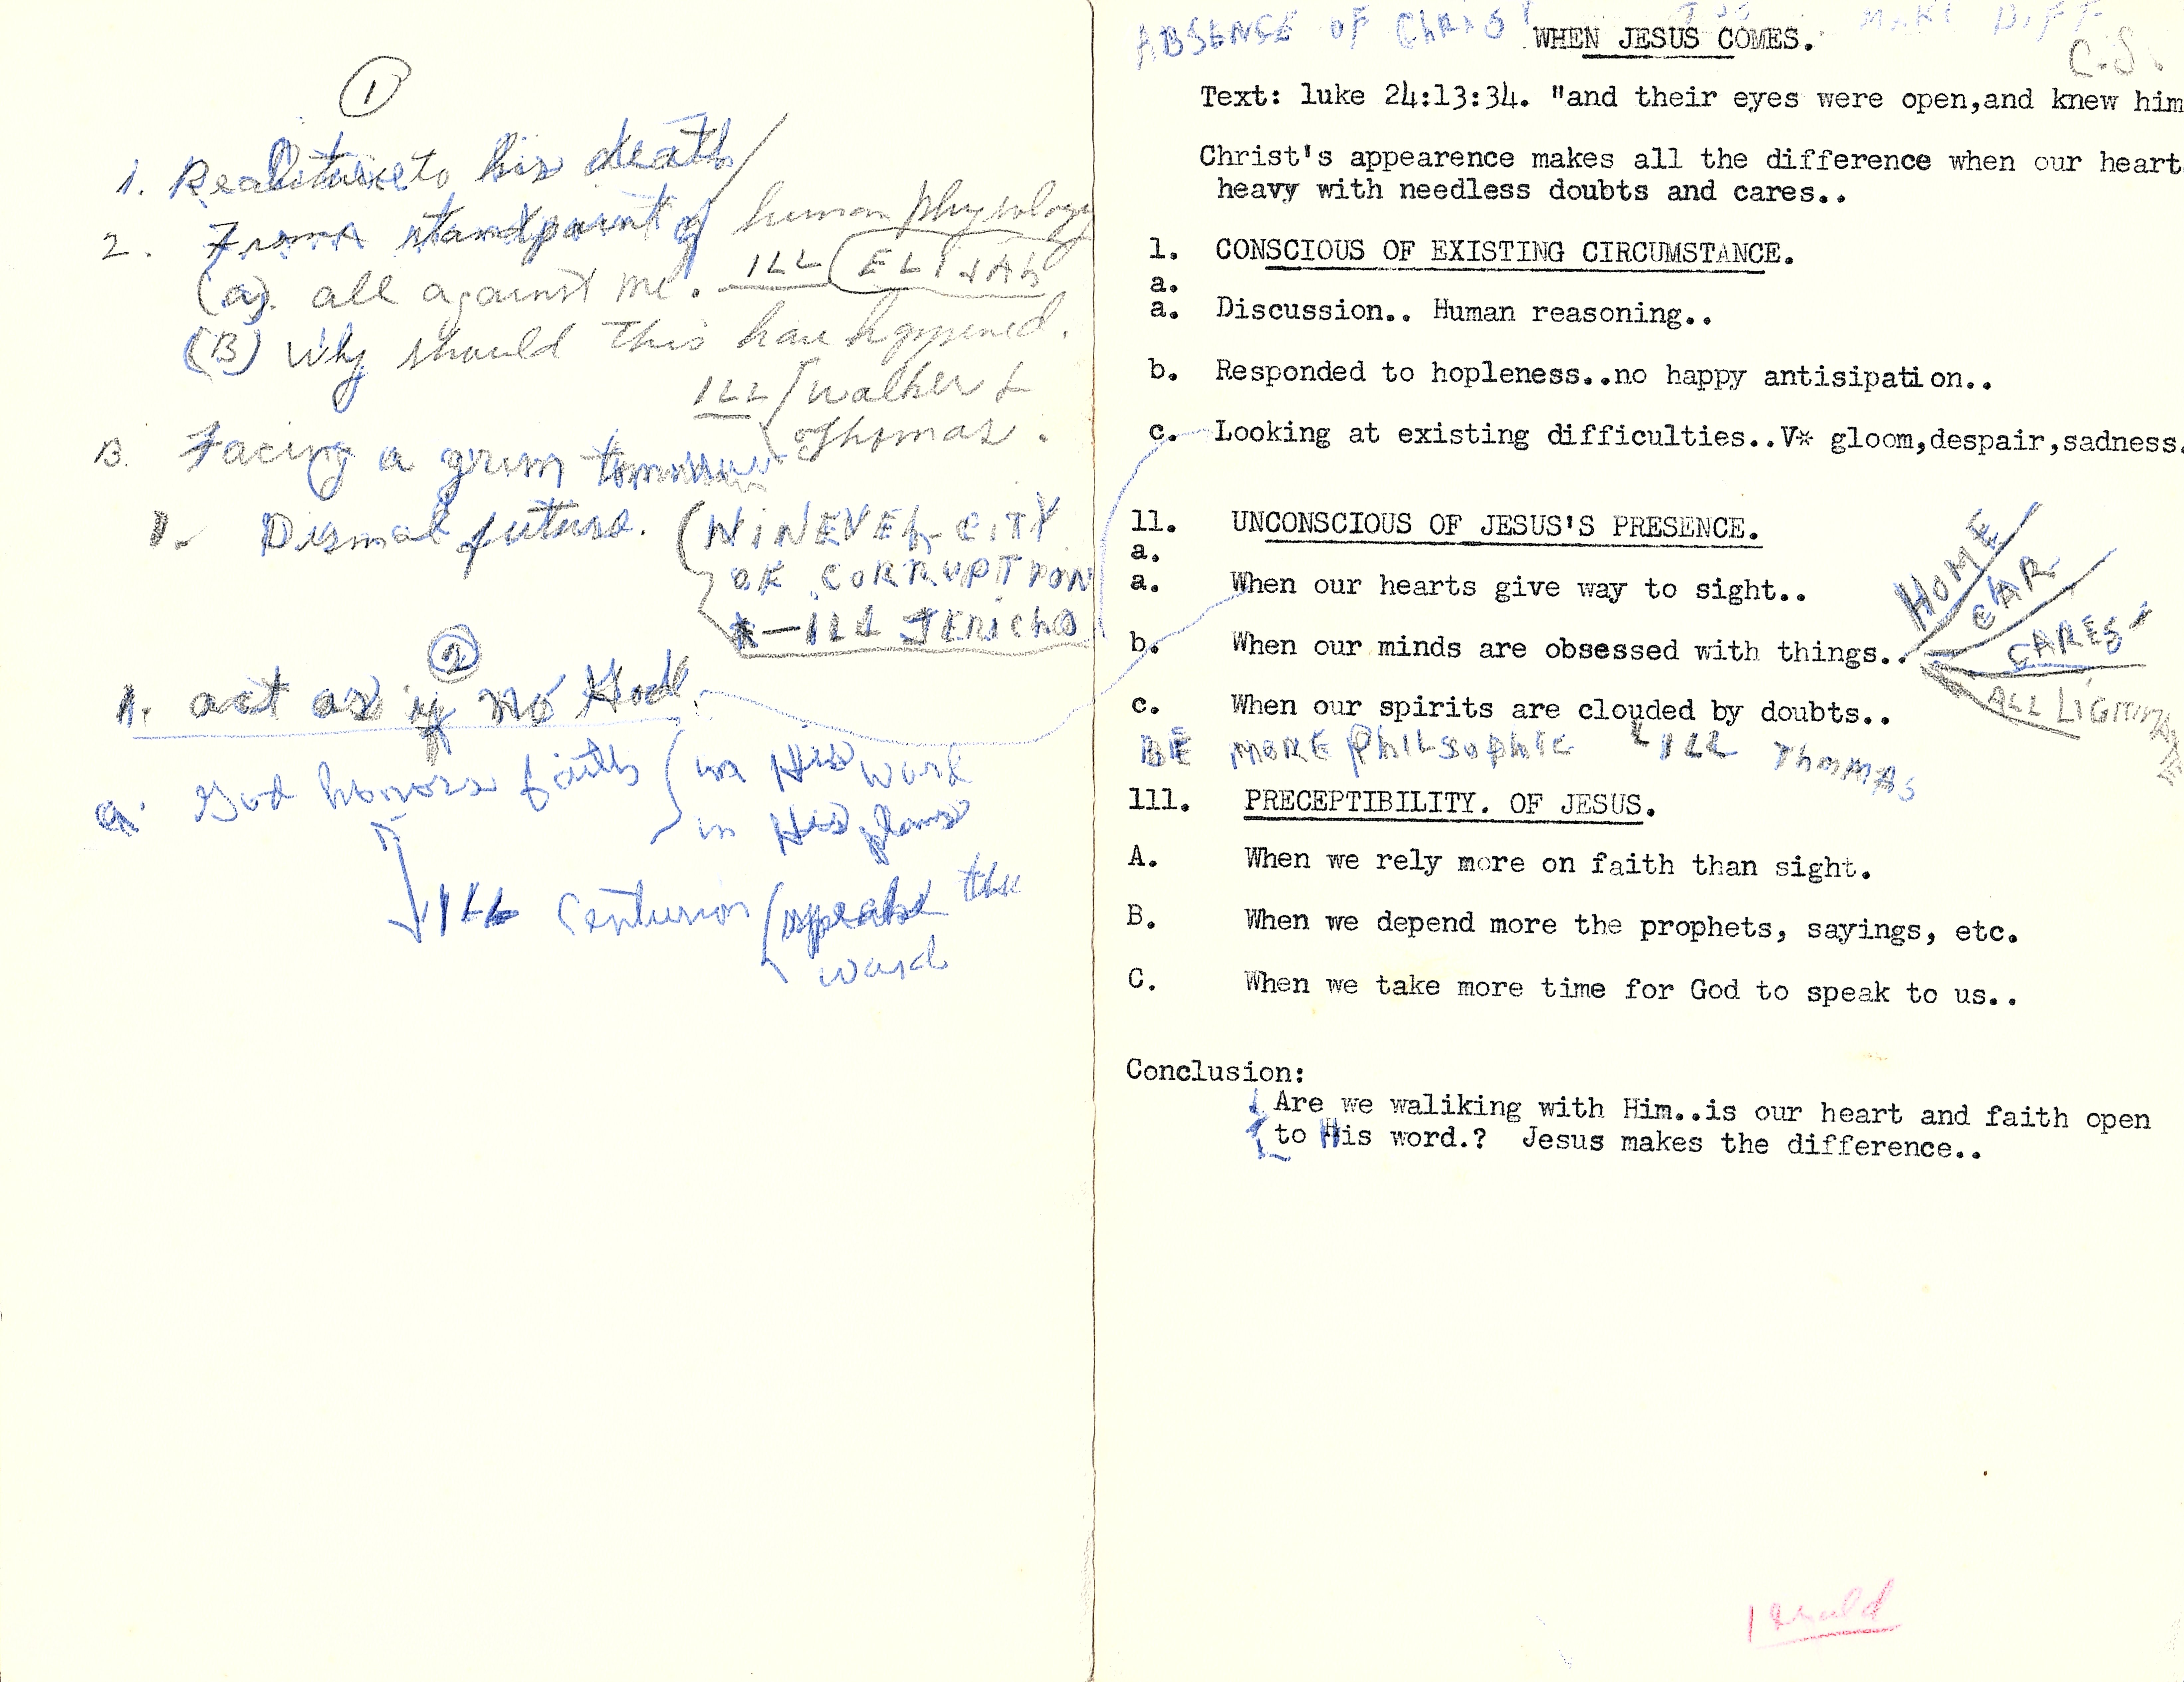 ①
1. to his death
2. From standpoint of human physology
(a). all against me. ILL ELIJAh
(B) Why should this have happened.
ILL Walker &
Thomas.
B. Facing a grim tomorrow
1. Dismal future. (NINEVEh CITY
OF CORRUPTION
*—ILL JERichO
②
1. act as if no God.
a. God honors faith in His word
in His plans
ILL Centurion (speake the
word
ABSENCE OF ChRIST MAKE DIFF
WHEN JESUS COMES.
C.S.
Text: luke 24:13:34. "and their eyes were open,and knew him
Christ's appearence makes all the difference when our heart
heavy with needless doubts and cares..
1. CONSCIOUS OF EXISTING CIRCUMSTANCE.
a.
a. Discussion.. Human reasoning..
b. Responded to hopleness..no happy antisipation..
c. Looking at existing difficulties..V* gloom,despair,sadness.
11. UNCONSCIOUS OF JESUS'S PRESENCE.
a.
a. When our hearts give way to sight..
b. When our minds are obsessed with things..
HOME
CAR
CARES
ALL
c. When our spirits are clouded by doubts..
BE MORE PhILSOphIC ILL ThOMAS
111. PRECEPTIBILITY. OF JESUS.
A. When we rely more on faith than sight.
B. When we depend more the prophets, sayings, etc.
C. When we take more time for God to speak to us..
Conclusion:
Are we waliking with Him..is our heart and faith open
to His word.? Jesus makes the difference..